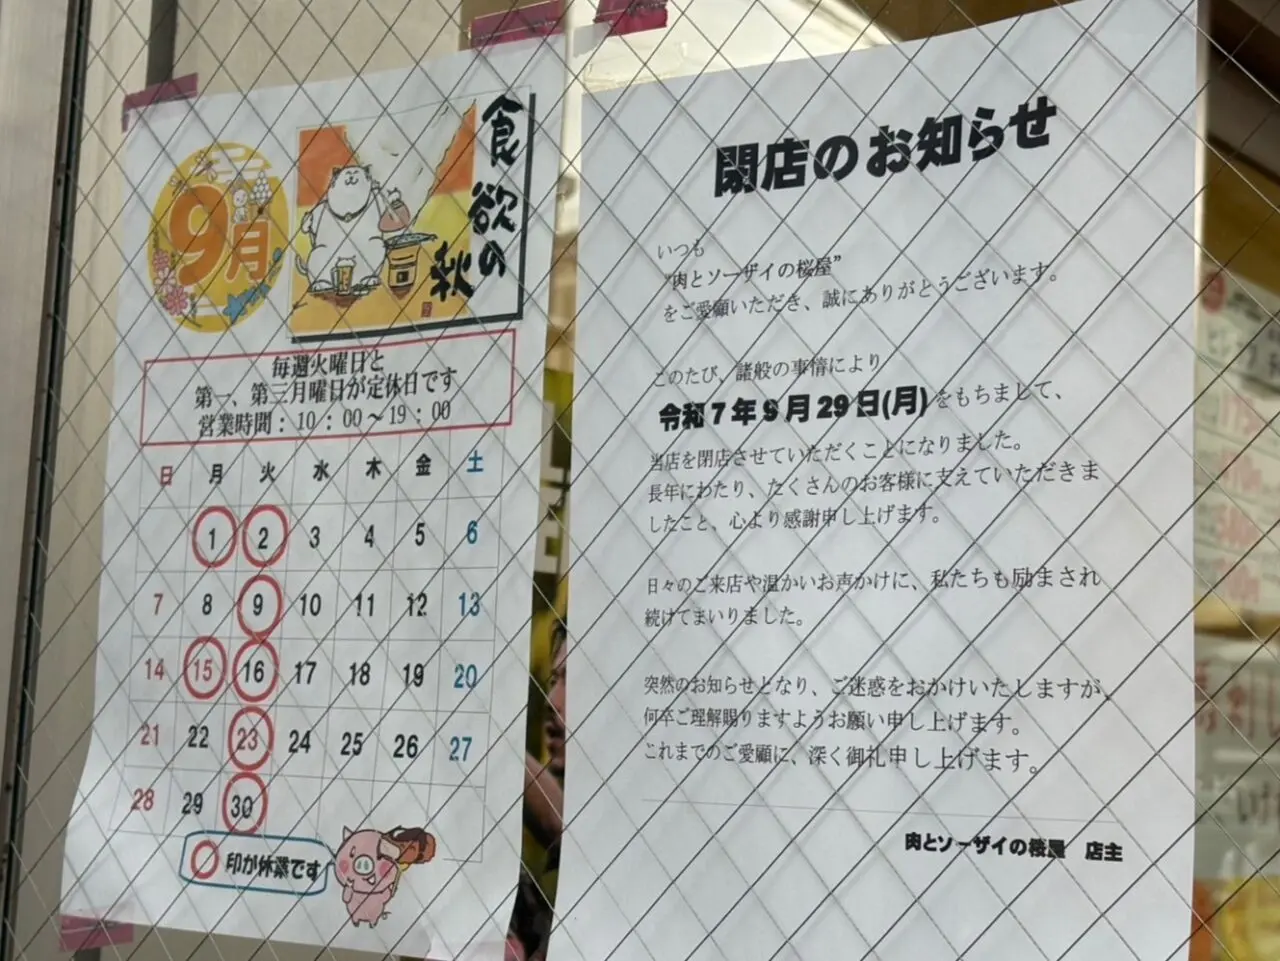 9月
食欲の
秋
毎週火曜日と
第一、第三月曜日が定休日です
営業時間：10：00～19：00
日 月 火 水 木 金 土
1 2 3 4 5 6
7 8 9 10 11 12 13
14 15 16 17 18 19 20
21 22 23 24 25 26 27
28 29 30
印が休業です
閉店のお知らせ
いつも
"肉とソーザイの桜屋"
をご愛顧いただき、誠にありがとうございます。
このたび、諸般の事情により
令和7年9月29日(月)をもちまして、
当店を閉店させていただくことになりました。
長年にわたり、たくさんのお客様に支えていただきま
したこと、心より感謝申し上げます。
日々のご来店や温かいお声かけに、私たちも励まされ
続けてまいりました。
突然のお知らせとなり、ご迷惑をおかけいたしますが、
何卒ご理解賜りますようお願い申し上げます。
これまでのご愛顧に、深く御礼申し上げます。
肉とソーザイの桜屋 店主